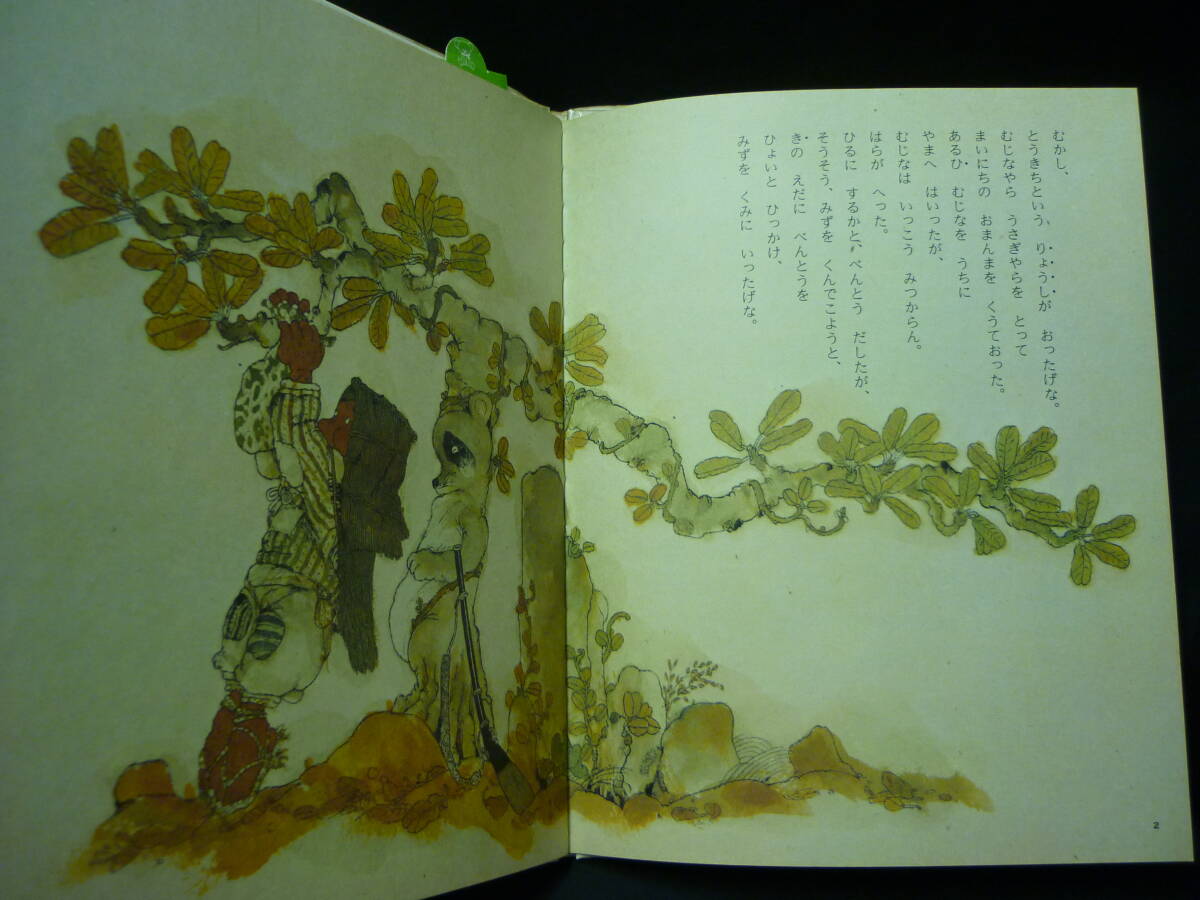 むかし、
とうきちという、りょうしが おったげな。
むじなやら うさぎやらを とって
まいにちの おまんまを くうておった。
あるひ むじなを うちに
やまへ はいったが、
むじなは いっこう みつからん。
はらが へった。
ひるに するかと、べんとう だしたが、
そうそう、みずを くんでこようと、
きの えだに べんとうを
ひょいと ひっかけ、
みずを くみに いったげな。
2